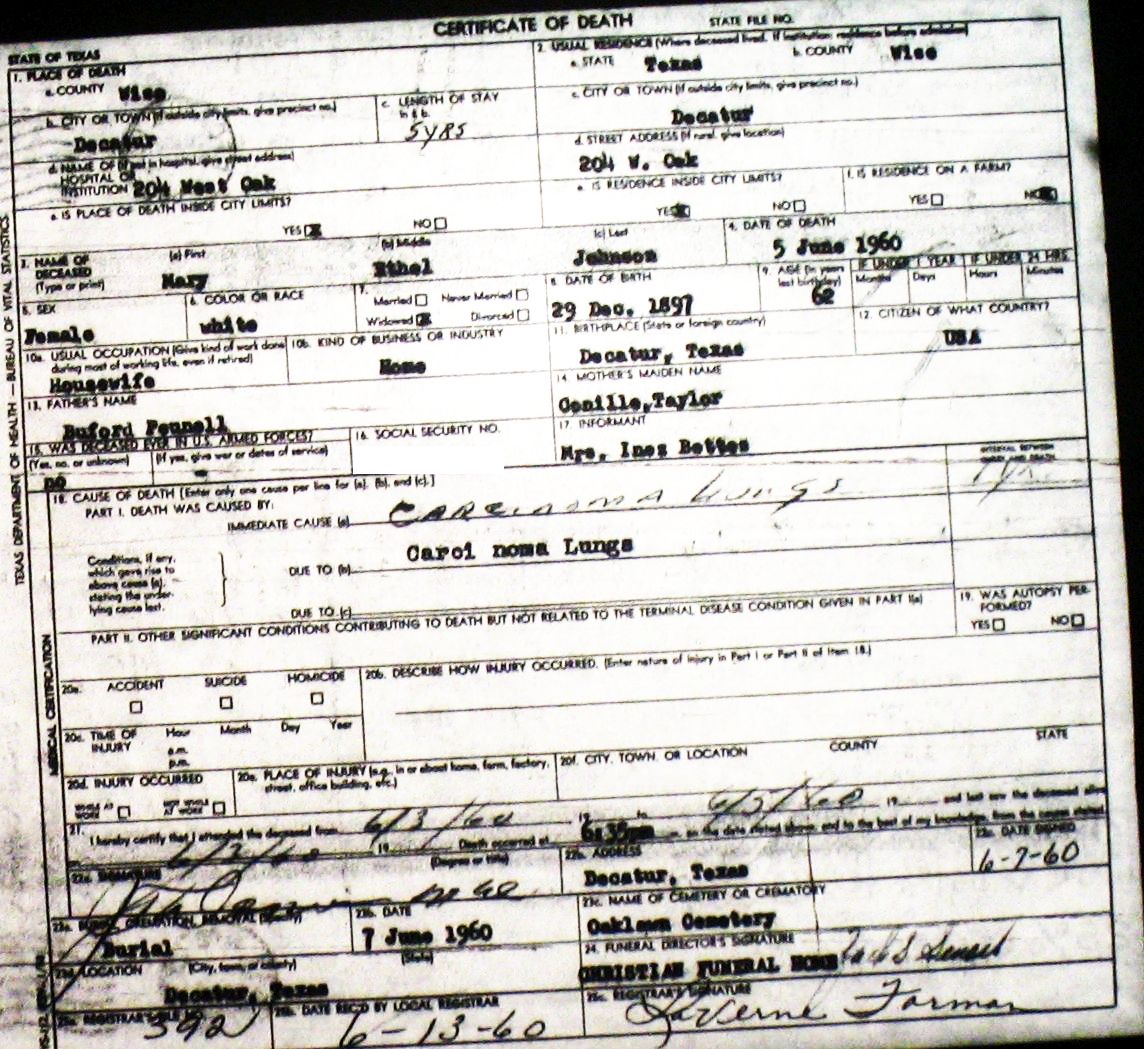 CERTIFICATE OF DEATH STATE FILE NO.
STATE OF TEXAS
1. PLACE OF DEATH
a. COUNTY Wise
2. USUAL RESIDENCE (Where deceased lived. If institution: residence before admission)
a. STATE Texas b. COUNTY Wise
b. CITY OR TOWN (If outside city limits, give precinct no.)
Decatur
c. LENGTH OF STAY
in 1 b.
5 yrs
c. CITY OR TOWN (If outside city limits, give precinct no.)
Decatur
d. NAME OF (If not in hospital, give street address)
HOSPITAL OR
INSTITUTION 204 West Oak
d. STREET ADDRESS (If rural, give location)
204 W. Oak
e. IS PLACE OF DEATH INSIDE CITY LIMITS?
YES NO
e. IS RESIDENCE INSIDE CITY LIMITS?
YES NO
f. IS RESIDENCE ON A FARM?
YES NO
3. NAME OF
DECEASED
(Type or print)
(a) First (b) Middle (c) Last
Mary Ethel Johnson
4. DATE OF DEATH
5 June 1960
5. SEX
Female
6. COLOR OR RACE
white
7.
Married Never Married
Widowed Divorced
8. DATE OF BIRTH
29 Dec. 1897
9. AGE (In years
last birthday)
62
IF UNDER 1 YEAR IF UNDER 24 HRS.
Months Days Hours Minutes
10a. USUAL OCCUPATION (Give kind of work done
during most of working life, even if retired)
Housewife
10b. KIND OF BUSINESS OR INDUSTRY
Home
11. BIRTHPLACE (State or foreign country)
Decatur, Texas
12. CITIZEN OF WHAT COUNTRY?
USA
13. FATHER'S NAME
Buford
14. MOTHER'S MAIDEN NAME
Taylor
15. WAS DECEASED EVER IN U.S. ARMED FORCES?
(Yes, no, or unknown) (If yes, give war or dates of service)
no -
16. SOCIAL SECURITY NO.
17. INFORMANT
Mrs. Inez Bettes
18. CAUSE OF DEATH [Enter only one cause per line for (a), (b), and (c).]
INTERVAL BETWEEN
ONSET AND DEATH
PART I. DEATH WAS CAUSED BY:
IMMEDIATE CAUSE (a) Carcinoma Lungs
Conditions, if any,
which gave rise to
above cause (a),
stating the under-
lying cause last.
Carci noma Lungs
DUE TO (b)
DUE TO (c)
PART II. OTHER SIGNIFICANT CONDITIONS CONTRIBUTING TO DEATH BUT NOT RELATED TO THE TERMINAL DISEASE CONDITION GIVEN IN PART I(a)
19. WAS AUTOPSY PER-
FORMED?
YES NO
20a. ACCIDENT SUICIDE HOMICIDE
20b. DESCRIBE HOW INJURY OCCURRED. (Enter nature of injury in Part I or Part II of Item 18.)
20c. TIME OF
INJURY
Hour Month Day Year
a.m.
p.m.
20d. INJURY OCCURRED
WHILE AT
WORK
NOT WHILE
AT WORK
20e. PLACE OF INJURY (e.g., in or about home, farm, factory,
street, office building, etc.)
20f. CITY, TOWN, OR LOCATION COUNTY STATE
21. I hereby certify that I attended the deceased from 6/3/60 19 to 6/5/60 19 and last saw the deceased alive
19 Death occurred at 6:35pm on the date stated above, and to the best of my knowledge, from the causes stated.
22a. SIGNATURE (Degree or title)
22b. ADDRESS
Decatur, Texas
22c. DATE SIGNED
6-7-60
23a. BURIAL, CREMATION, REMOVAL (Specify)
Burial
23b. DATE
7 June 1960
23c. NAME OF CEMETERY OR CREMATORY
Oaklawn Cemetery
23d. LOCATION (City, town, or county) (State)
Decatur, Texas
24. FUNERAL DIRECTOR'S SIGNATURE
CHRISTIAN FUNERAL HOME
25a. REGISTRAR'S FILE NO.
392
25b. DATE REC'D BY LOCAL REGISTRAR
6-13-60
25c. REGISTRAR'S SIGNATURE
LaVerne Forman
TEXAS DEPARTMENT OF HEALTH — BUREAU OF VITAL STATISTICS
MEDICAL CERTIFICATION